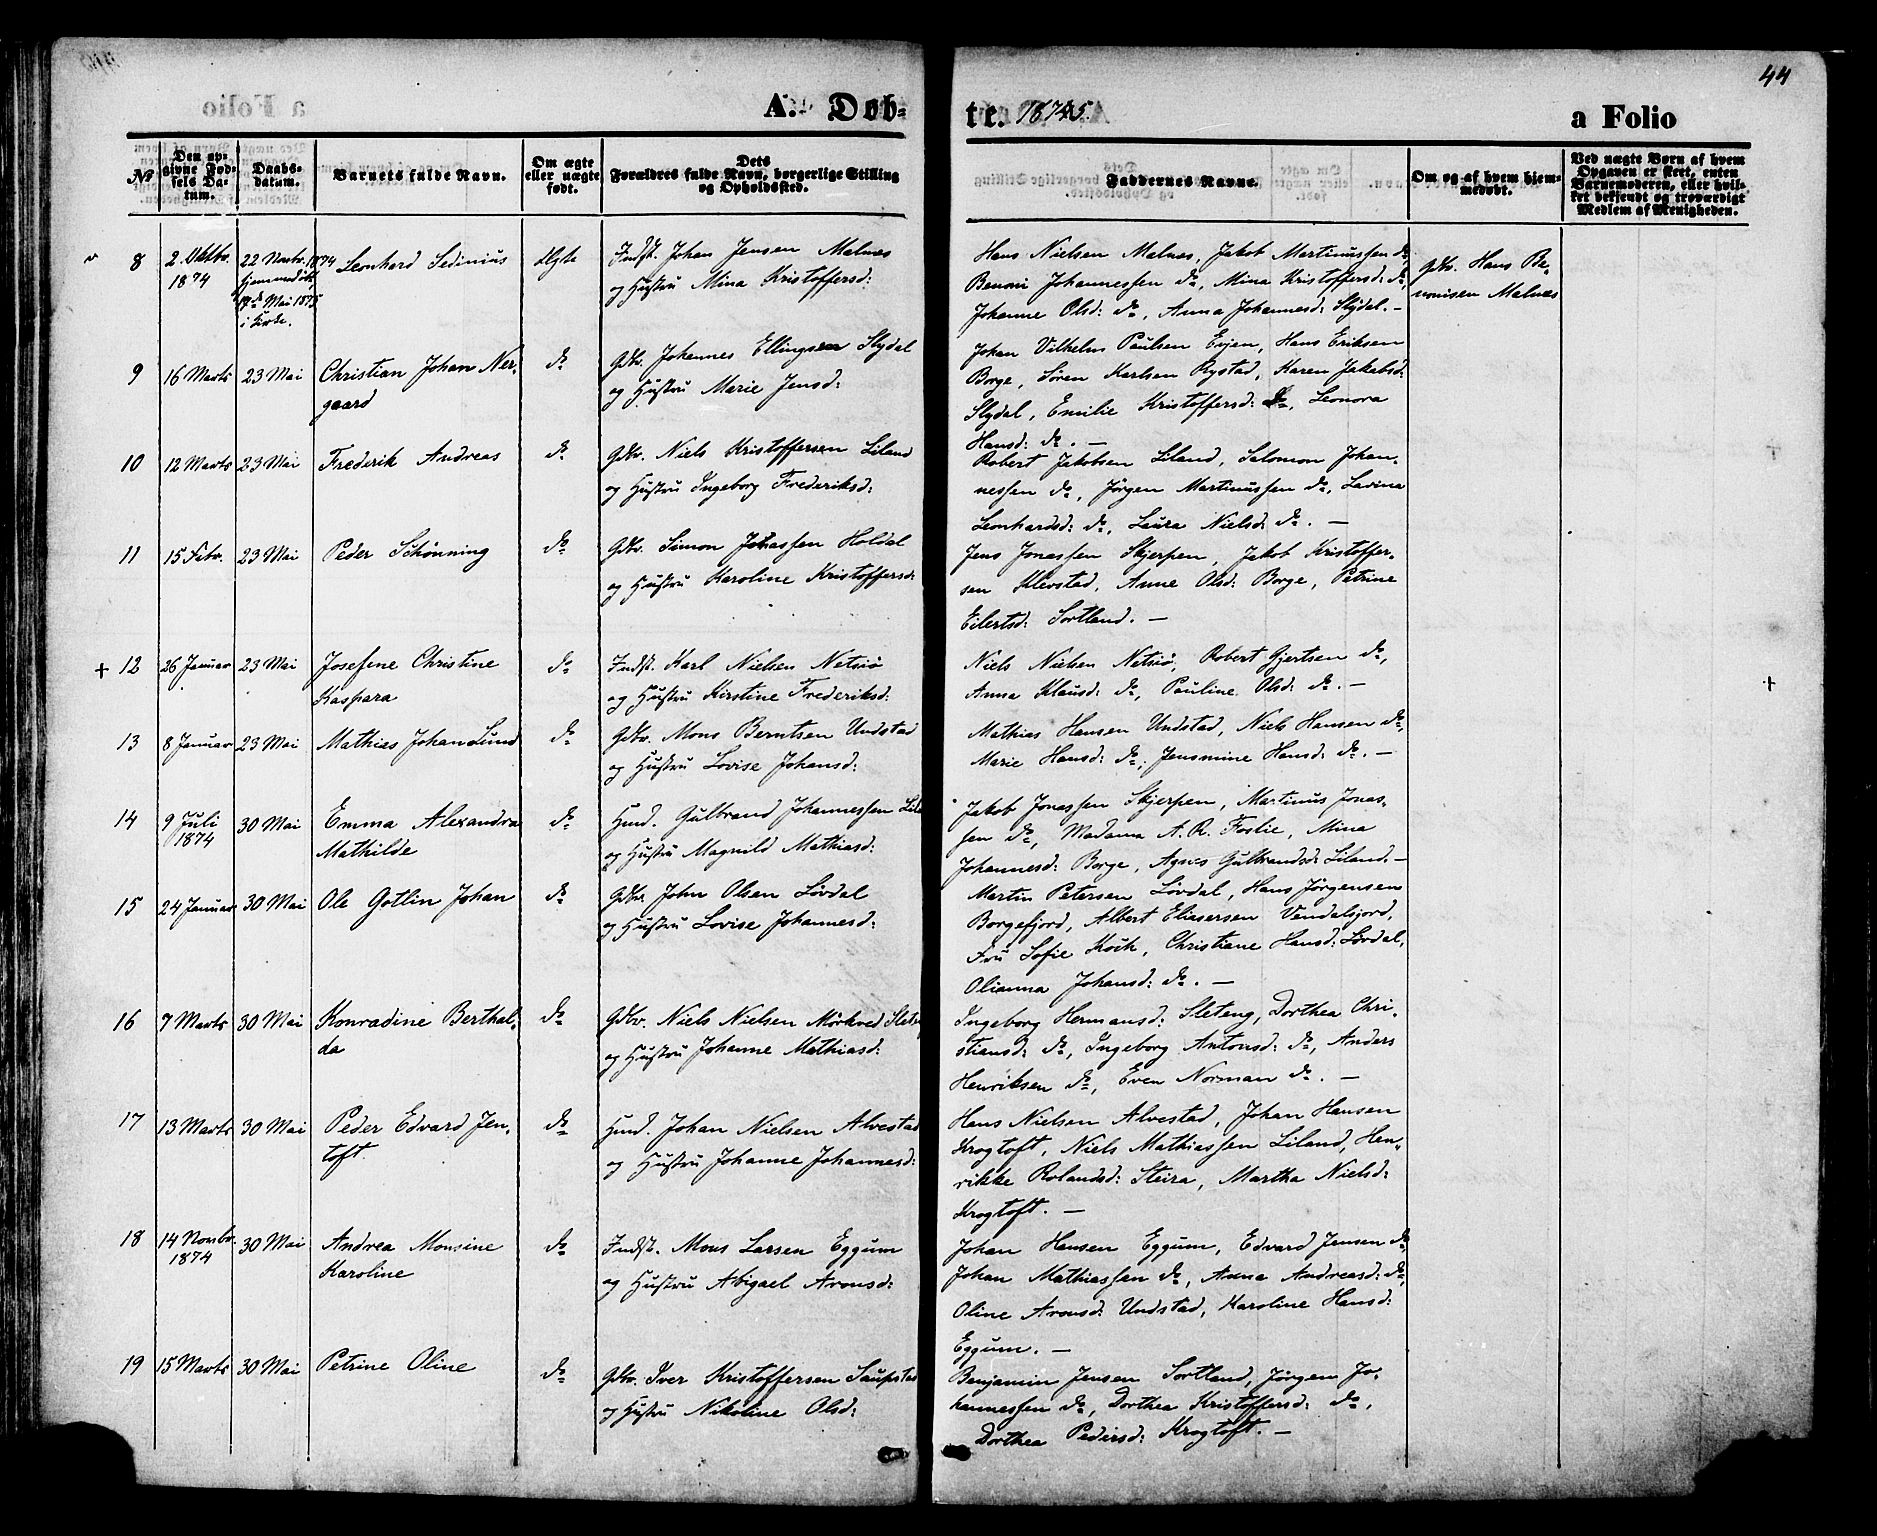 44
A. Døb-
te. 1875.
a Folio
No
Den op-
givne Fød-
sels Da-
tum.
Daabs-
datum.
Barnets fulde Navn.
Om ægte
eller uægte
født.
Dets
Forældres fulde Navn, borgerlige Stilling
og Opholdssted.
Faddernes Navne.
Om og af hvem hjem-
medøbt.
Ved uægte Børn af hvem
Opgaven er skeet, enten
Barnemoderen, eller hvil-
ket bekjendt og troværdigt
Medlem af Menigheden.
8
2. Oktbr.
1874
22 Novbr. 1874
hjemmedøbt,
Mai 1875
i Kirke.
Leonhard Sedinius
Ægte
Indst. Johan Jensen Malnes
og Hustru Mina Kristoffersd:
Hans Nielsen Malnes, Jakob Martinussen do,
Benoni Johannessen do, Mina Kristoffersd: do,
Johanne Olsd: do, Anna Johannesd: Slydal. –
Gdbr. Hans Be-
nonisen Malnes
9
16 Marts
23 Mai
Christian Johan Ner-
gaard
do
Gdbr. Johannes Ellingsen Slydal
og Hustru Marie Jensd:
Johan Vilhelm Paulsen Evjen, Hans Eriksen
Borge, Sören Karlsen Rystad, Karen Jakobsd:
Slydal, Emilie Kristoffersd: do, Leonora
Hansd: do. –
10
12 Marts
23 Mai
Frederik Andreas
do
Gdbr. Niels Kristoffersen Liland
og Hustru Ingeborg Frederiksd:
Robert Jakobsen Liland, Salomon Johan-
nessen do, Jörgen Martinussen do, Lavina
Leonhardsd: do, Laura Nielsd: do. –
11
15 Febr.
23 Mai
Peder Schönning
do
Gdbr. Simon Johassen Holdal
og Hustru Karoline Kristoffersd:
Jens Jonassen Skjerpen, Jakob Kristoffer-
sen Klevstad, Anne Olsd: Borge, Petrine
Eilertsd: Sortland. –
+ 12
26 Januar
23 Mai
Josefine Christine
Kaspara
do
Indst. Karl Nielsen Netsiö
og Hustru Kirstine Frederiksd:
Niels Nielsen Netsiö, Robert Gjertsen do,
Anna Klausd: do, Pauline Olsd: do. –
+
13
8 Januar
23 Mai
Mathias Johan Lund
do
Gdbr. Mons Berntsen Undstad
og Hustru Lovise Johansd:
Mathias Hansen Undstad, Niels Hansen do,
Marie Hansd: do, Jensmine Hansd: do. –
14
9 Juli
1874
30 Mai
Emma Alexandra
Mathilde
do
Hmd. Gulbrand Johannessen Lila
og Hustru Magnild Mathiasd:
Jakob Jonassen Skjerpen, Martinus Jonas-
sen do, Madama A. R. Foslie, Mina
Johannesd: Borge, Agnes Gulbrandsd: Liland. –
15
24 Januar
30 Mai
Ole Gotlin Johan
do
Gdbr. John Olsen Lövdal
og Hustru Lovise Johannesd:
Martin Petersen Lövdal, Hans Jörgensen
Borgefjord, Albert Eliasersen Vendalsjord,
Fru Sofie Koch, Christiane Hansd: Lövdal,
Olianna Johansd: do. –
16
7 Marts
30 Mai
Konradine Berthal-
da
do
Gdbr. Niels Nielsen Mörkved Slet
og Hustru Johanne Mathiasd:
Ingeborg Hermansd: Sleteng, Dorthea Chri-
stiansd: do, Ingeborg Antonsd: do, Anders
Henriksen do, Even Norman do. –
17
13 Marts
30 Mai
Peder Edvard Jen-
toft
do
Hmd. Johan Nielsen Alvestad
og Hustru Johanne Johannesd:
Hans Nielsen Alvestad, Johan Hansen
Krogtoft, Niels Mathiassen Liland, Hen-
rikke Rolandsd: Steira, Martha Nielsd:
Krogtoft. –
18
14 Novbr.
1874
30 Mai
Andrea Monsine
Karoline
do
Indst. Mons Larsen Eggum
og Hustru Abigael Aronsd:
Johan Hansen Eggum, Edvard Jensen do,
Johan Mathiassen do, Anna Andreasd: do,
Oline Aronsd: Undstad, Karoline Hansd:
Eggum. –
19
15 Marts
30 Mai
Petrine Oline
do
Gdbr. Iver Kristoffersen Saupstad
og Hustru Nikoline Olsd:
Benjamin Jensen Sortland, Jörgen Jo-
hannessen do, Dorthea Kristoffersd: do,
Dorthea Pedersd: Krogtoft. –